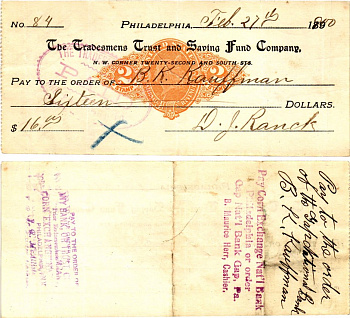 No. 84 Philadelphia, Feb. 27th 1900
The Tradesmens Trust and Saving Fund Company,
N. W. CORNER TWENTY-SECOND AND SOUTH STS.
PAY TO THE ORDER OF B. K. Kauffman
Sixteen DOLLARS.
$ 16.00 D. J. Ranck
PAY TO THE ORDER OF
CORN EXCHANGE
PHILADELPHIA
Pay Corn Exchange Nat'l Bank
Philadelphia or order
Gap Nat'l Bank Gap, Pa.
D. Maurice Herr, Cashier.
Pay to the order
of the Gap National Bank
B. K. Kauffman